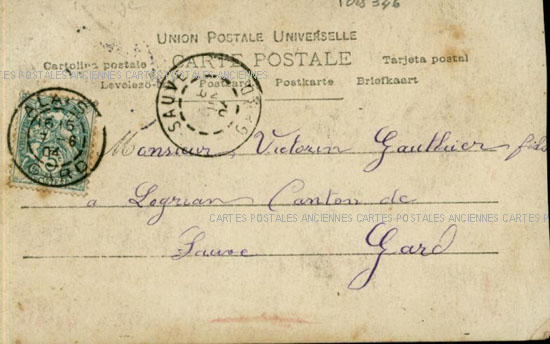 UNION POSTALE UNIVERSELLE
CARTE POSTALE
Cartolina postale Tarjeta postal
CARTES POSTALES ANCIENNES CARTES POSTALES ANCIENNES CARTES POSTALES ANCIENNES
Levelező- Postkarte Briefkaart
SAUVE
GARD
Monsieur Victorin Gauthier fils
à Logrian Canton de
CARTES POSTALES ANCIENNES CARTES POSTALES ANCIENNES CARTES PO
Sauve Gard